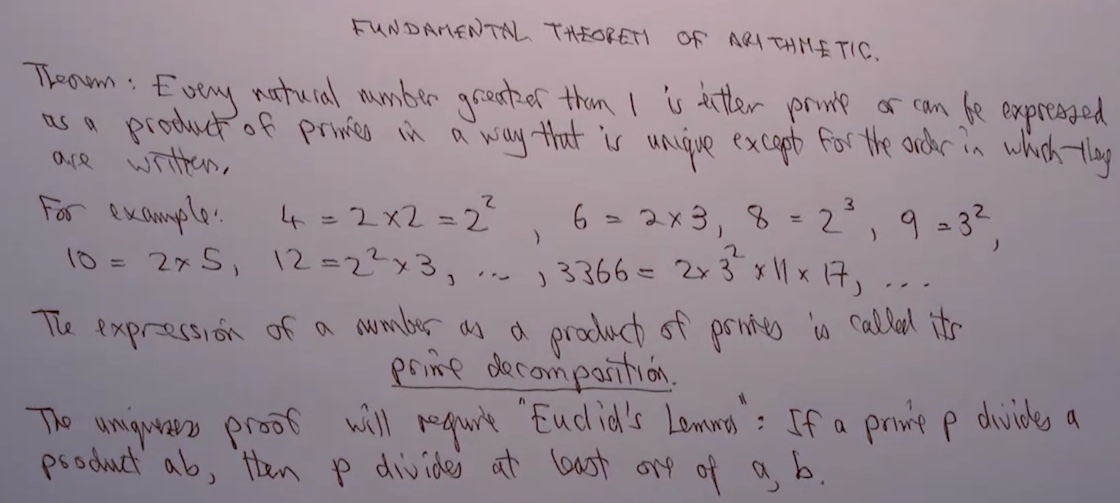 FUNDAMENTAL THEOREM OF ARITHMETIC.
Theorem: Every natural number greater than 1 is either prime or can be expressed
as a product of primes in a way that is unique except for the order in which they
are written.
For example: 4 = 2×2 = 2², 6 = 2×3, 8 = 2³, 9 = 3²,
10 = 2×5, 12 = 2²×3, ..., 3366 = 2×3²×11×17, ...
The expression of a number as a product of primes is called its
prime decomposition.
The uniqueness proof will require "Euclid's Lemma": If a prime p divides a
product ab, then p divides at least one of a, b.